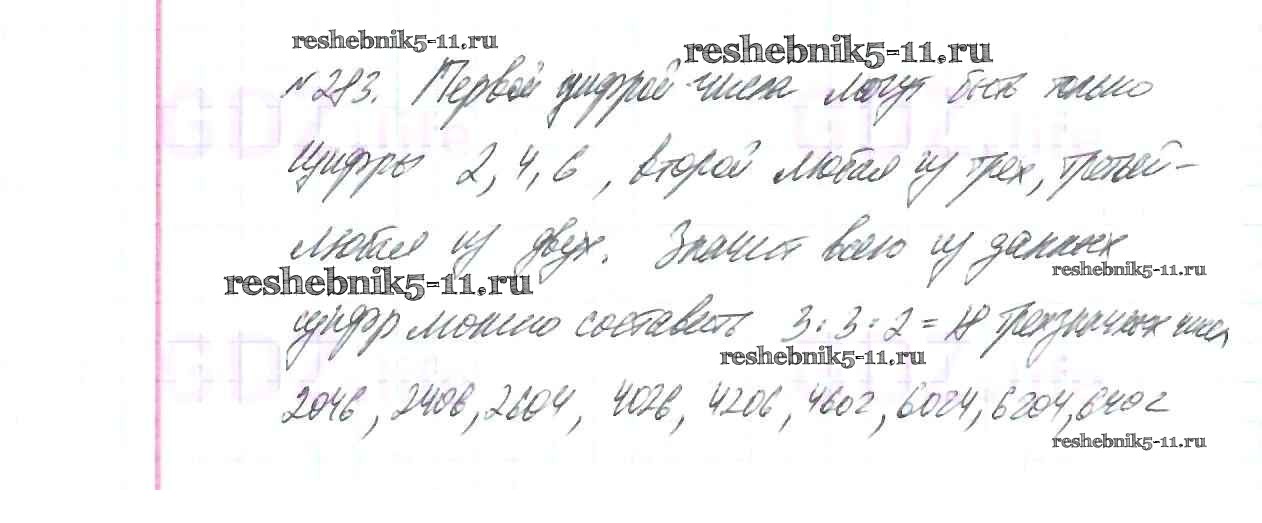 reshebnik5-11.ru
reshebnik5-11.ru
№ 283. Первой цифрой числа могут быть только
цифры 2, 4, 6, второй любая из трех, третьей -
любая из двух. Значит всего из данных
reshebnik5-11.ru
reshebnik5-11.ru
цифр можно составить 3 : 3 : 2 = 18 трехзначных чисел
reshebnik5-11.ru
2046, 2406, 2604, 4026, 4206, 4602, 6024, 6204, 6402
reshebnik5-11.ru